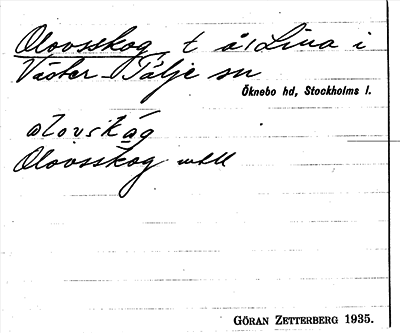 Olovsskog t å/Lina i
Väster-Tälje sn
Öknebo hd, Stockholms l.
olovskåg
Olovsskog
GÖRAN ZETTERBERG 1935.